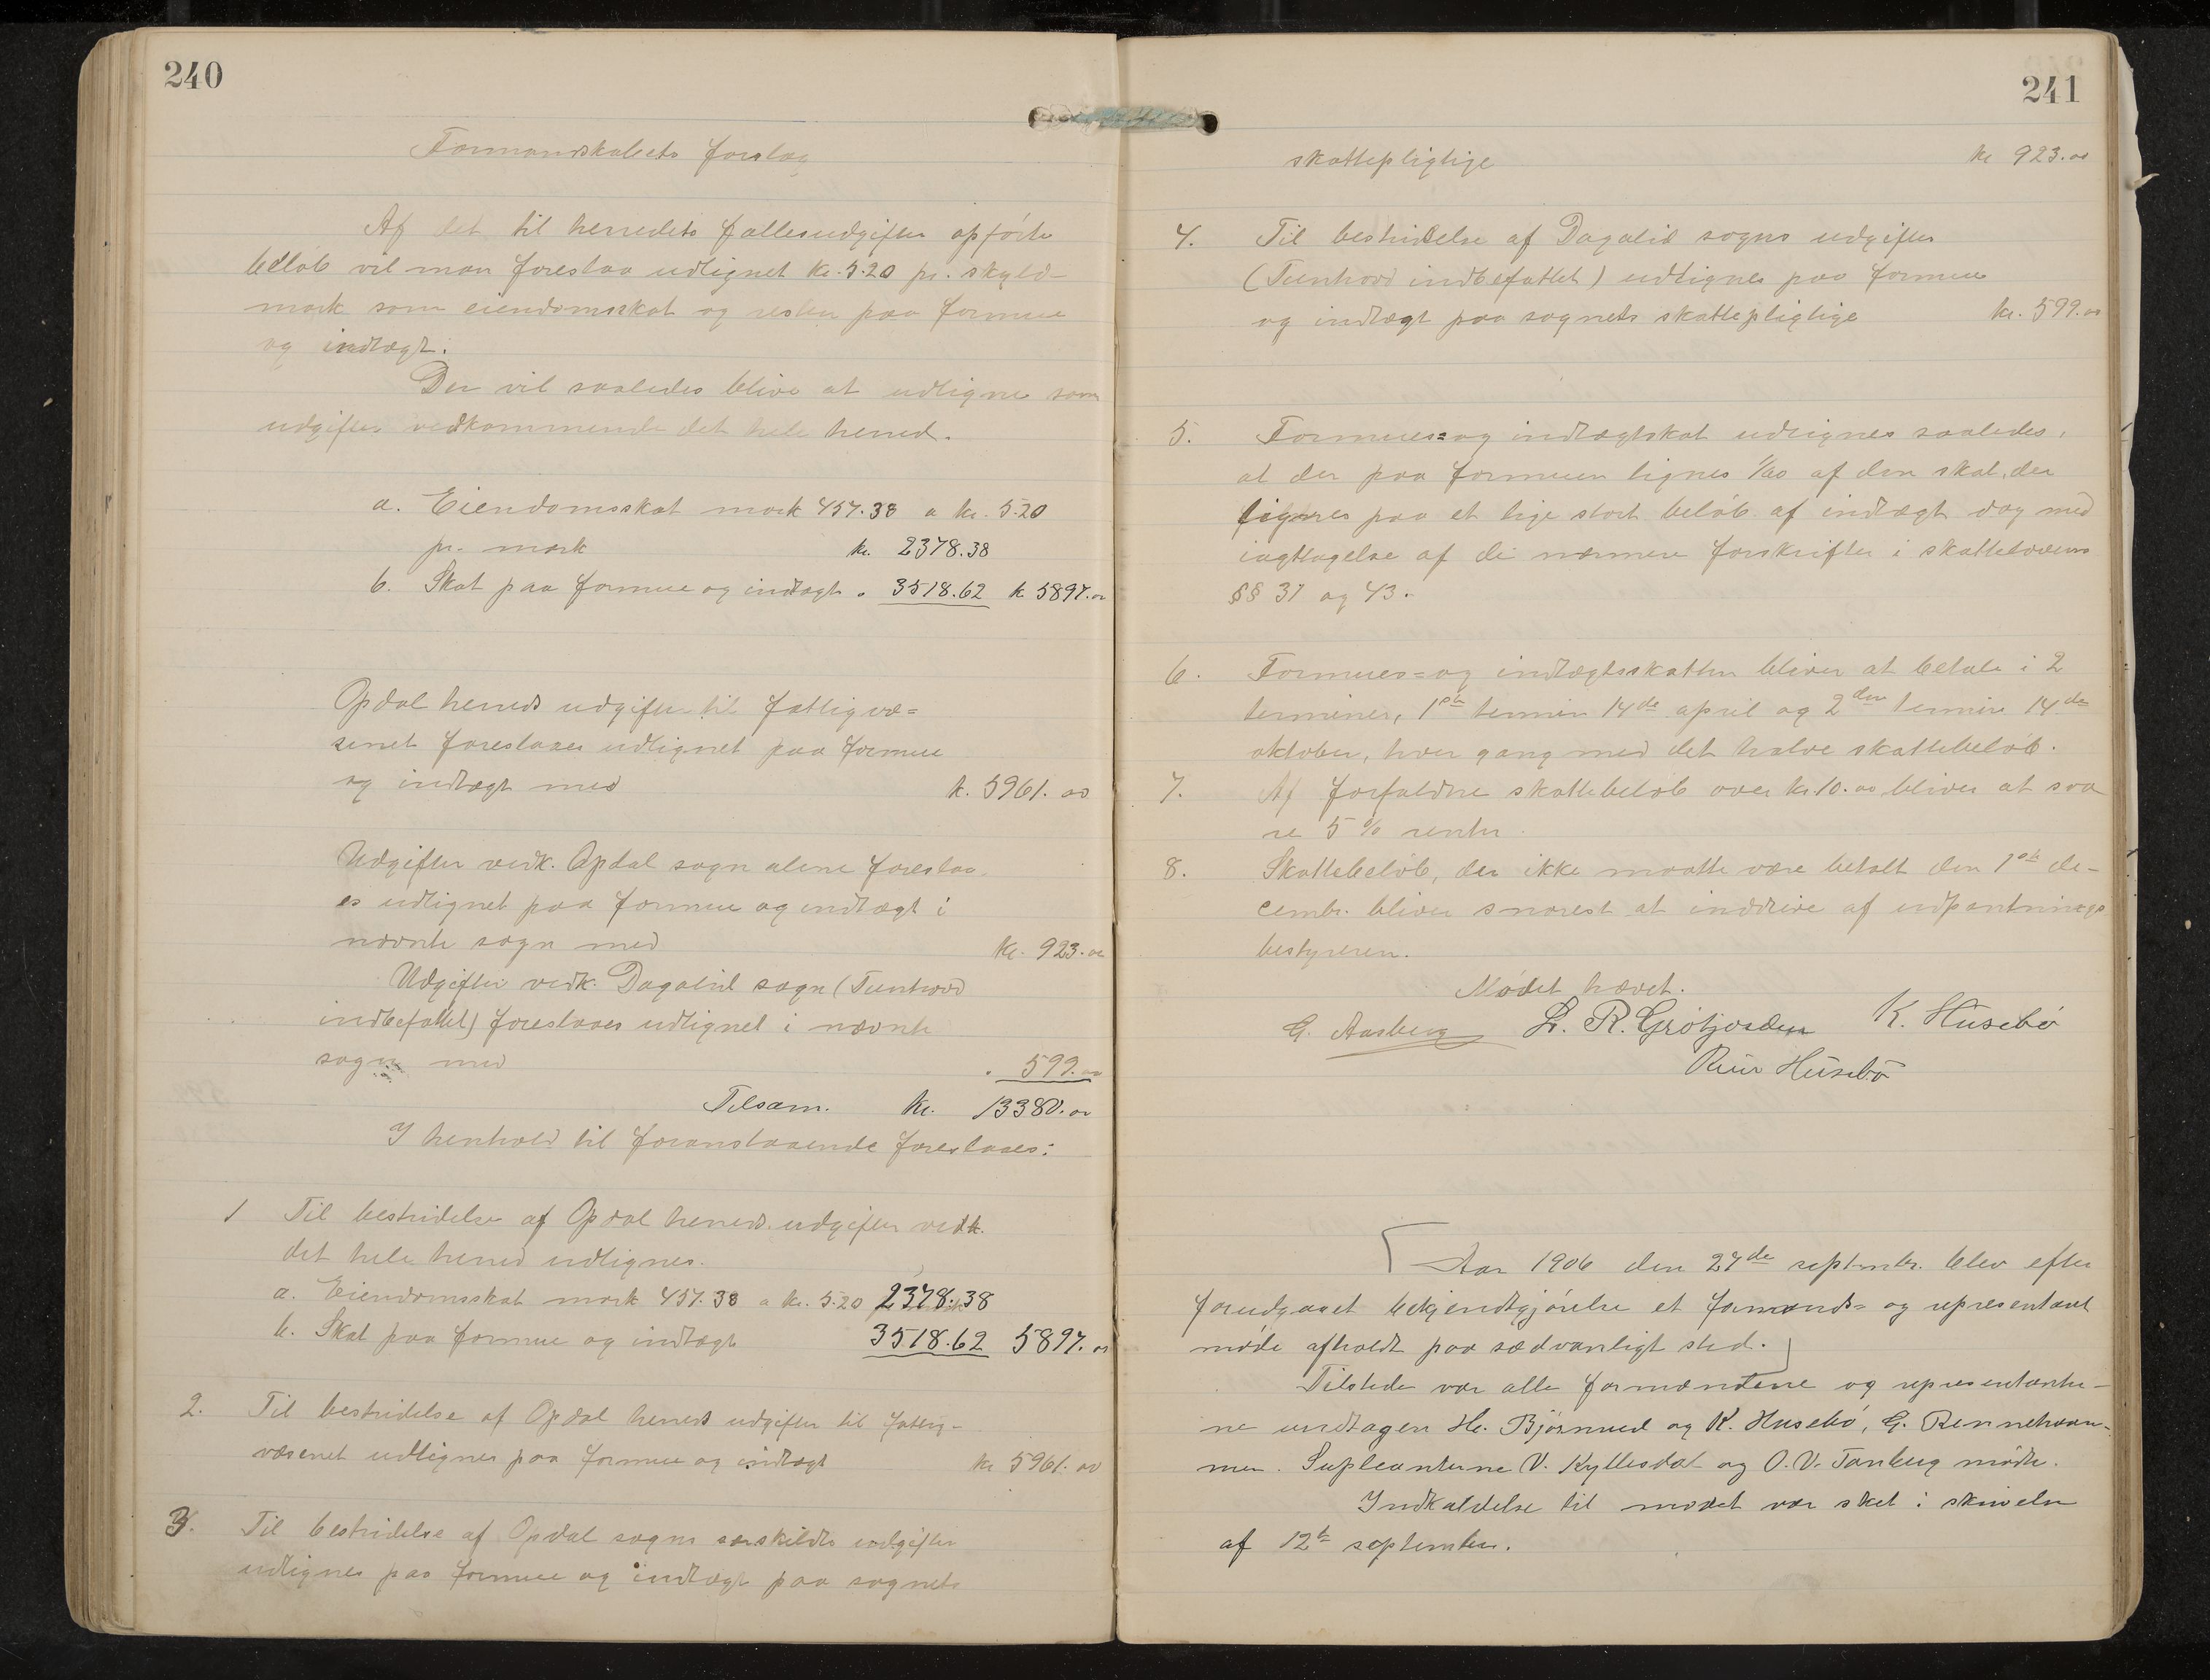 240
Formandskabets forslag
Af det til herredets fællesudgifter opförte
belöb vil man foreslaa udlignet kr. 5.20 pr. skyld-
mark som eiendomsskat og resten paa formue
og indtægt.
Der vil saaledes blive at udligne som
udgifter vedkommende det hele herred.
a. Eiendomsskat mark 457.38 a kr. 5.20
pr. mark kr. 2378.38
b. Skat paa formue og indtægt " 3518.62 k 5897.00
Opdal herreds udgifter til fattigvæ=
senet foreslaaes udlignet paa formue
og indtægt med k. 5961.00
Udgifter vedk. Opdal sogn alene foreslaa
es udlignet paa formue og indtægt i
nævnte sogn med kr. 923.00
Udgifter vedk. Dagalid sogn (Tunhovd
indbefattet) foreslaaes udlignet i nævnte
sogn med " 599.00
Tilsam. kr. 13380.00
I henhold til foranstaaende foreslaaes:
1 Til bestridelse af Opdal herreds udgifter vedk.
det hele herred udlignes.
a. Eiendomsskat mark 457.38 a kr. 5.20 2378.38
b. Skat paa formue og indtægt 3518.62 5897.00
2. Til bestridelse af Opdal herreds udgifter til fattig-
væsenet udlignes paa formue og indtægt kr 5961.00
3. Til bestridelse af Opdal sogns særskildte udgifter
udlignes paa formue og indtægt paa sognets
241
skattepligtige kr 923.00
4. Til bestridelse af Dagalid sogns udgifter
(Tunhovd indbefattet) udlignes paa formue
og indtægt paa sognets skattepligtige kr. 599.00
5. Formues= og indtægtskat udlignes saaledes,
at der paa formuen lignes 1/60 af den skat, der
lignes paa et lige stort belöb af indtægt dog med
iagttagelse af de nærmere forskrifter i skattelovens
§§ 37 og 43.
6. Formues= og indtægtsskatten bliver at betale i 2
terminer, 1ste termin 14de april og 2den termin 14de
oktober, hver gang med det halve skattebelöb.
7. Af forfaldne skattebelöb over kr. 10.00 bliver at sva
re 5 % renter.
8. Skattebelöb, der ikke maatte være betalt den 1ste de-
cembr. bliver snarest at inddrive af udpantnings
bestyreren.
Mödet hævet.
G. Aasberg L. R. Grötjordden K. Husebö
Huseböe
Aar 1906 den 27de septembr. blev efter
forudgaaet bekjendtgjörelse et formands= og representant
möde afholdt paa sædvanligt sted.
Tilstede var alle formændene og representante-
ne undtagen H. Björnrud og K. Husebö, G. Rennehvam-
men. Supleanterne V. Kyllesdal og O. V. Tanberg mödte.
Indkaldelse til mödet var sket i skrivelse
af 12te september.